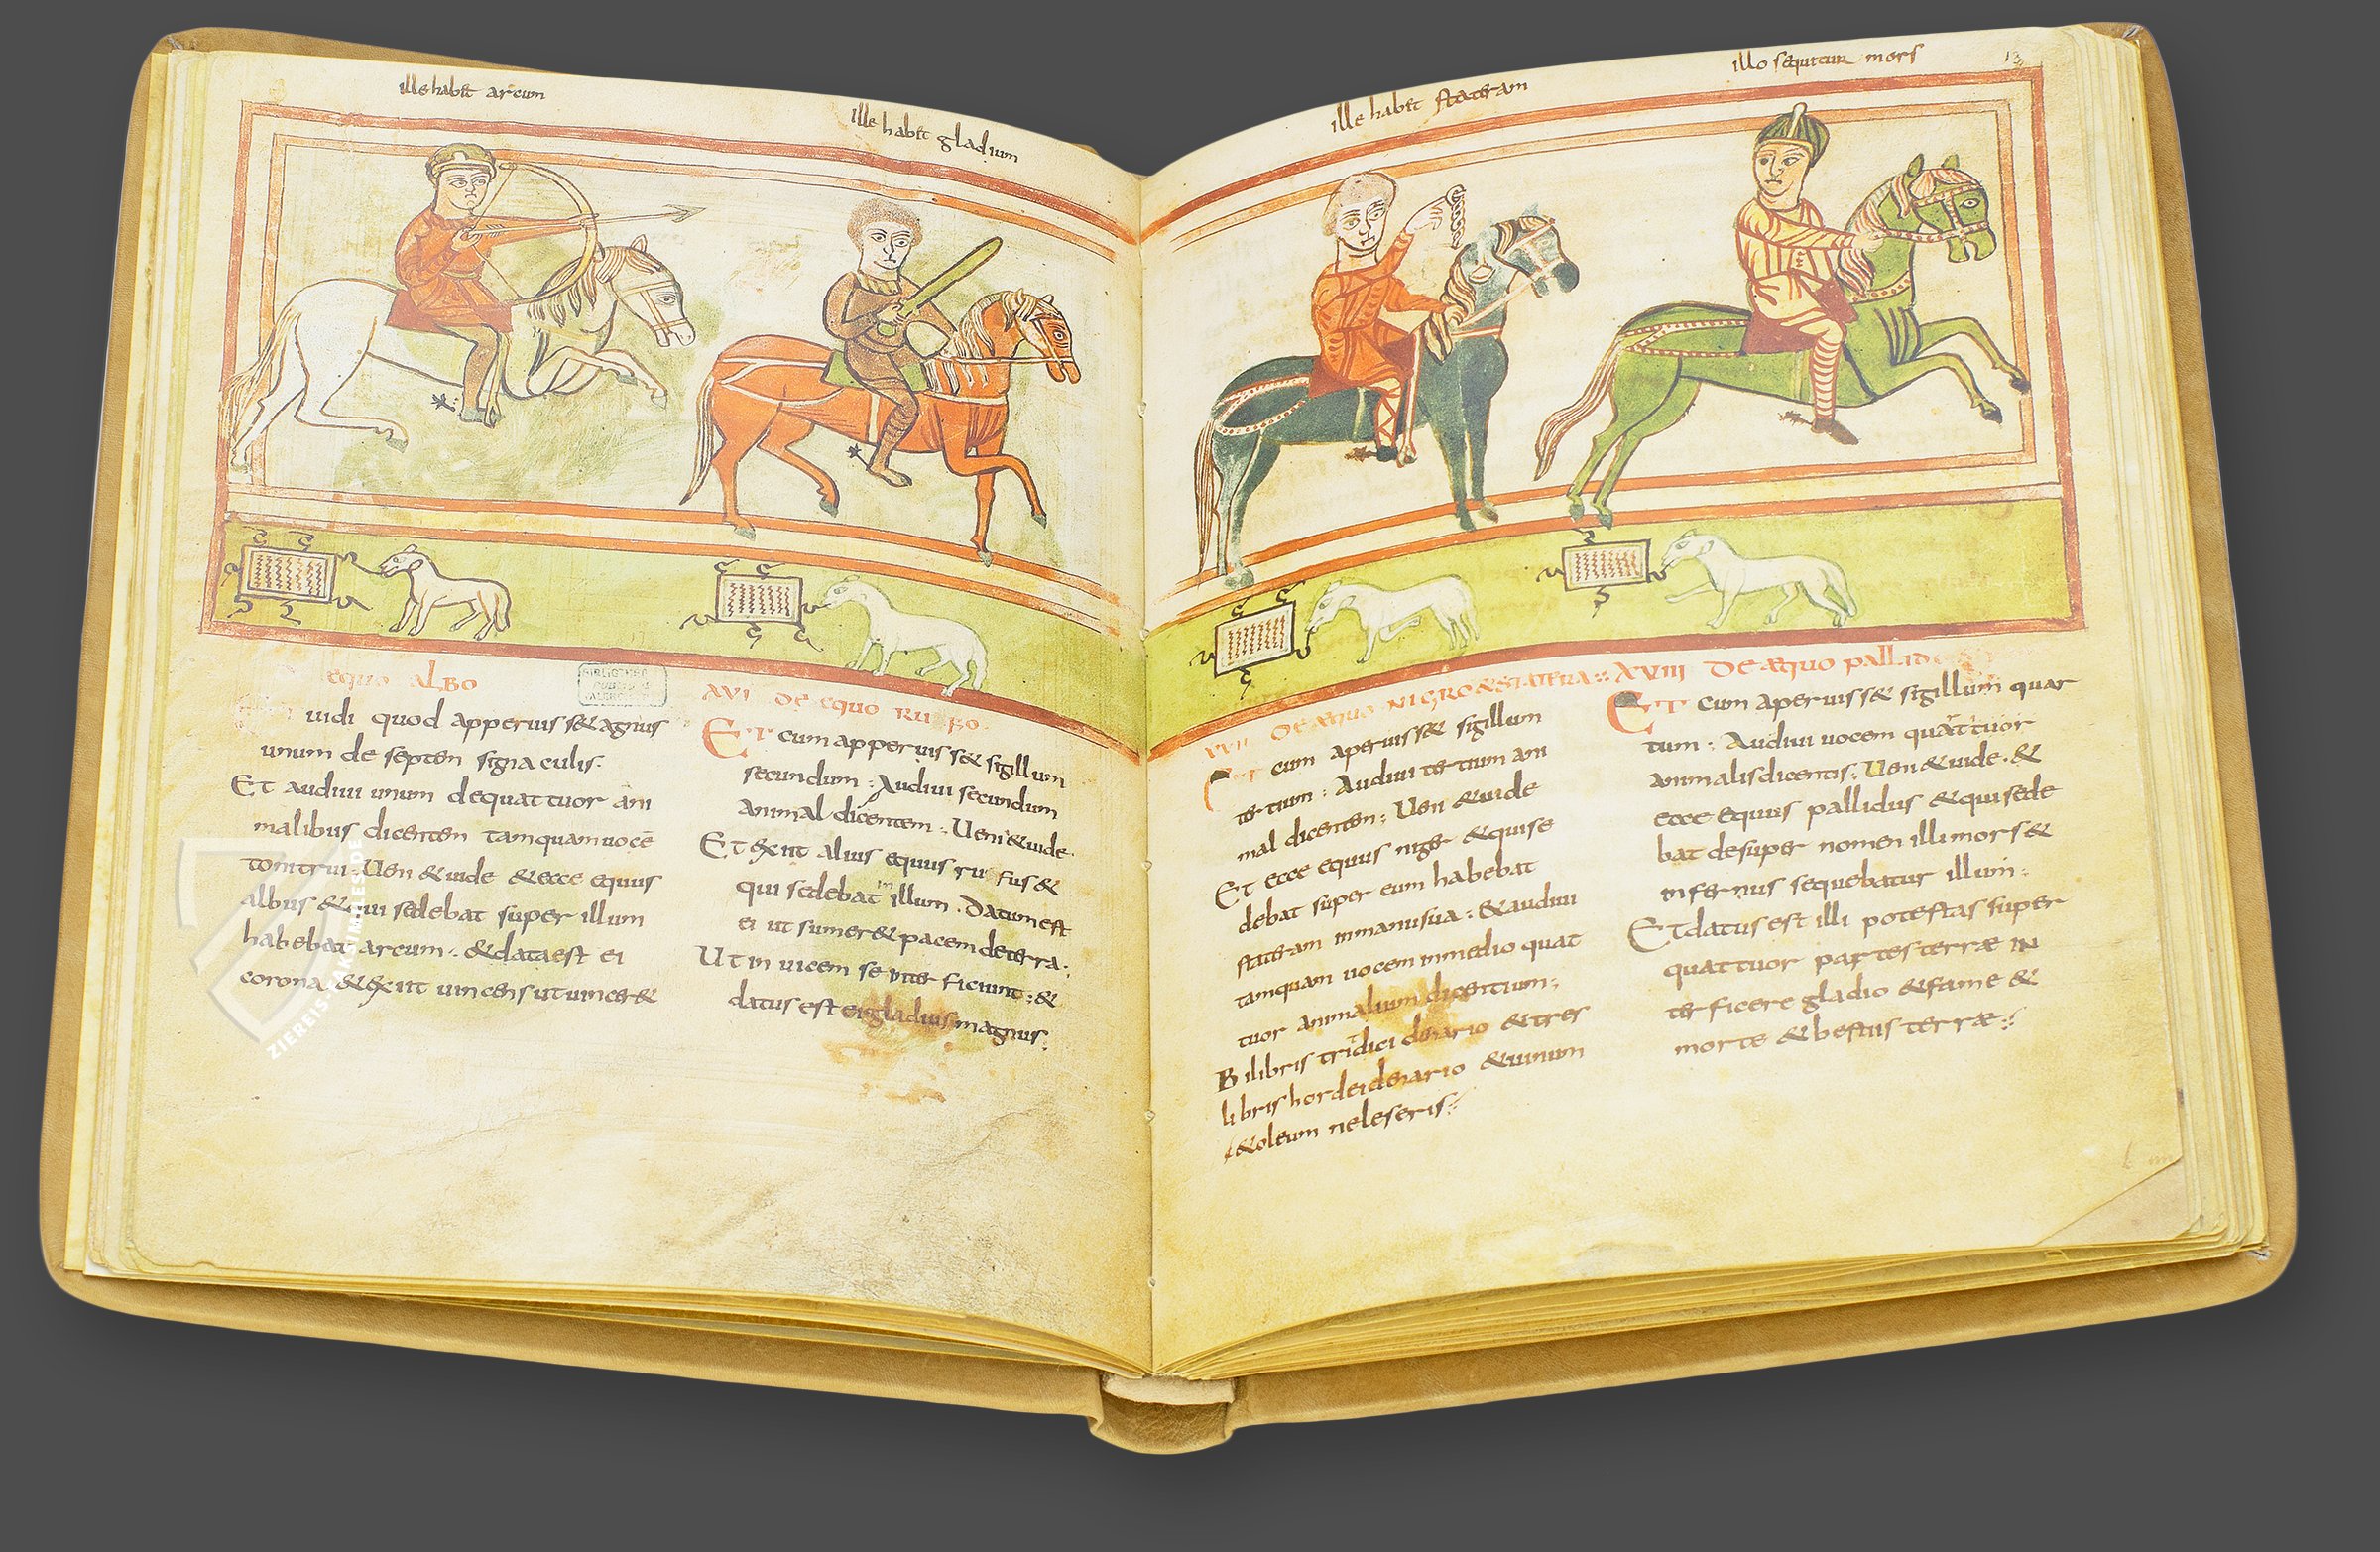 ille habet arcum
ille habet gladium
equo albo
uidi quod apperuiss& agnus
unum de septem signaculis.
Et audiui unum de quattuor ani
malibus dicentem tamquam uocē
tonitrui Ueni & uide & ecce equus
albus & qui sedebat super illum
habebat arcum. & data est ei
corona & exiit uincens ut uincer&
XVI de equo rufo
Et cum apperuiss& sigillum
secundum: Audiui secundum
animal dicentem: Ueni & uide.
Et exiit alius equus rufus &
qui sedebat in illum. Datum est
ei ut sumer& pacem de terra:
Ut in uicem se inter ficiunt: &
datus est ei gladius magnus:
ille habet stateram
illo sequitur mors
13
XVII De aequo nigro & statera::
Et cum aperuiss& sigillum
tertium: Audiui tertium ani
mal dicentem: Ueni & uide
Et ecce equus niger & qui se
debat super eum habebat
stateram in manu sua: & audiui
tamquam uocem in medio quat
tuor animalium dicentium:
Bilibris tridici denario & tres
libris hordei denario & uinum
& oleum ne leseris:
XVIII De aequo pallido
Et cum aperuiss& sigillum quar
tum: Audiui uocem quattuor
animalis dicentis: Ueni & uide. &
ecce equus pallidus & qui sede
bat desuper nomen illi mors &
infernus sequebatur illum:
Et datus est illi potestas super
quattuor partes terræ in
ter ficere gladio & fame &
morte & bestiis terræ::
ZIEREIS FAKSIMILES.DE